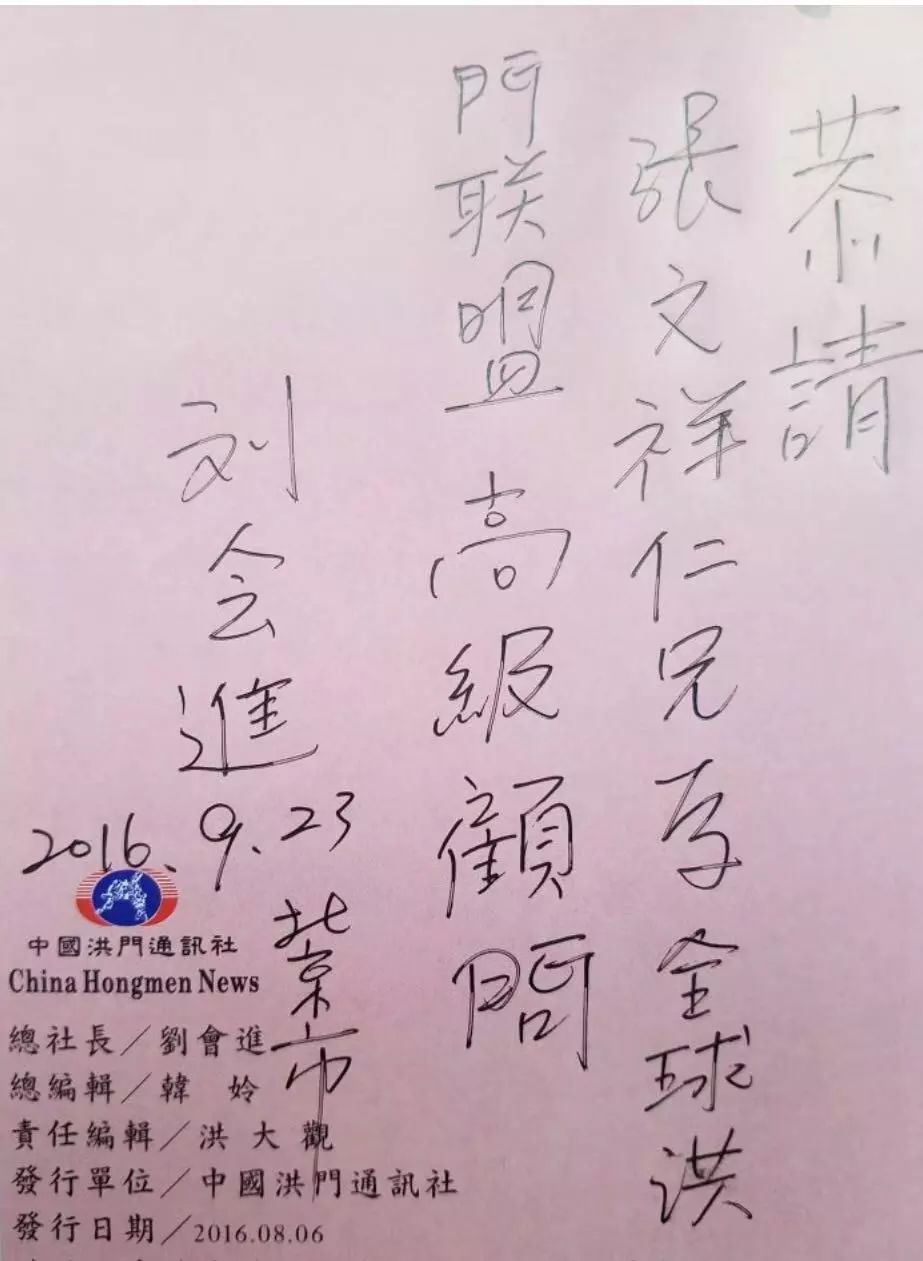 恭請
張文祥仁兄全球洪
門联盟高級顧問
刘会進
2016.9.23
北京市
中國洪門通訊社
China Hongmen News
總社長／劉會進
總編輯／韓 姈
責任編輯／洪大觀
發行單位／中國洪門通訊社
發行日期／2016.08.06